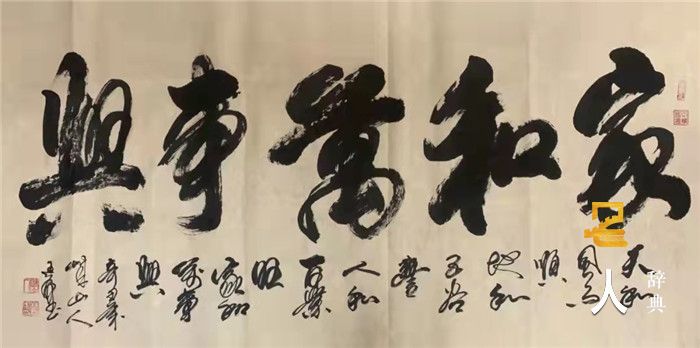 家和萬事興
天和
風雨
順
地和
五谷
豐
人和
百業
旺
家和
萬事
興
山人
名人辞典